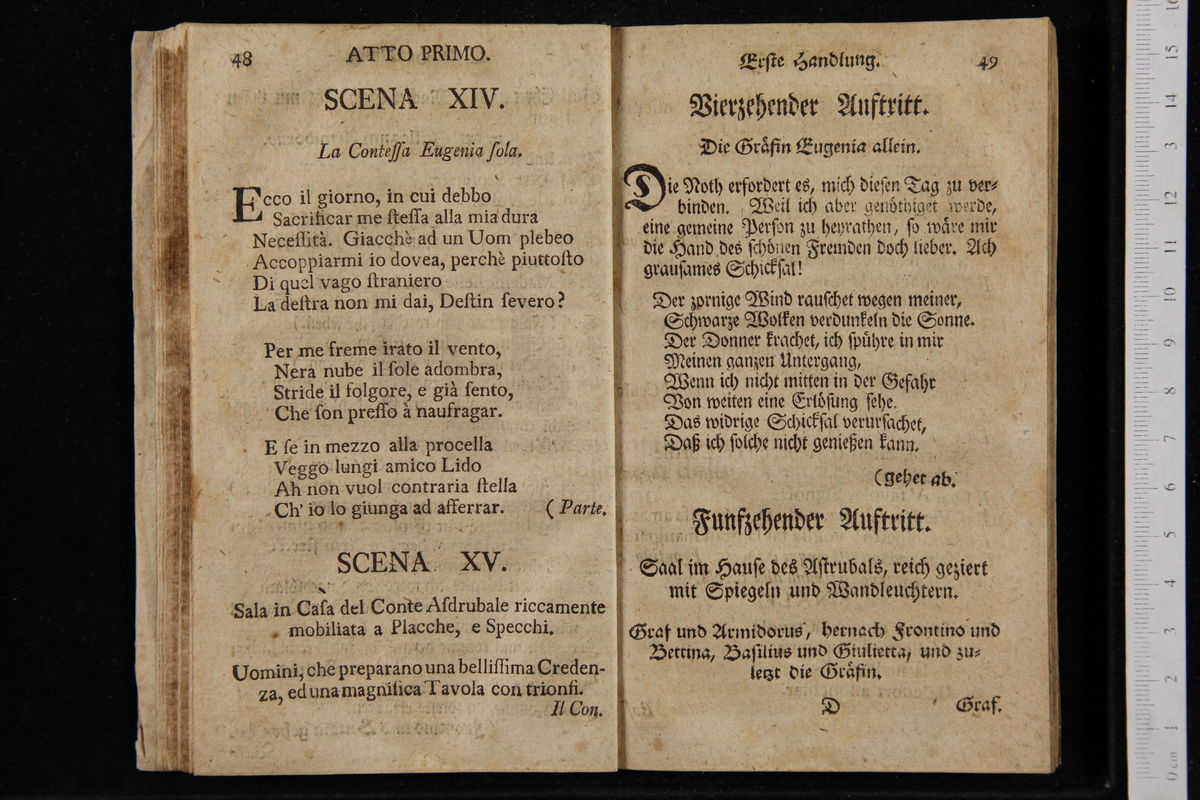 48
ATTO PRIMO.
SCENA XIV.
La Conteſſa Eugenia ſola.
Ecco il giorno, in cui debbo
Sacrificar me ſteſſa alla mia dura
Neceſſità. Giacchè ad un Uom plebeo
Accoppiarmi io dovea, perchè piuttoſto
Di quel vago ſtraniero
La deſtra non mi dai, Deſtin ſevero?
Per me freme irato il vento,
Nera nube il ſole adombra,
Stride il folgore, e già ſento,
Che ſon preſſo à naufragar.
E ſe in mezzo alla procella
Veggo lungi amico Lido
Ah non vuol contraria ſtella
Ch' io lo giunga ad afferrar. (Parte.
SCENA XV.
Sala in Caſa del Conte Aſdrubale riccamente
mobiliata a Placche, e Specchi.
Uomini, che preparano una belliſſima Creden-
za, ed una magnifica Tavola con trionfi.
Il Con.
Erſte Handlung. 49
Vierzehender Auftritt.
Die Gråfin Eugenia allein.
Die Noth erfordert es, mich dieſen Tag zu ver⸗
binden. Weil ich aber genöthiget werde,
eine gemeine Perſon zu heyrathen, ſo wäre mir
die Hand des ſchönen Fremden doch lieber. Ach
grauſames Schickſal!
Der zornige Wind rauſchet wegen meiner,
Schwarze Wolken verdunkeln die Sonne.
Der Donner krachet, ich ſpühre in mir
Meinen ganzen Untergang,
Wenn ich nicht mitten in der Gefahr
Von weiten eine Erlöſung ſehe.
Das widrige Schickſal verurſachet,
Daß ich ſolche nicht genießen kann.
(gehet ab.
Funfzehender Auftritt.
Saal im Hauſe des Aſtrubals, reich geziert
mit Spiegeln und Wandleuchtern.
Graf und Armidorus, hernach Frontino und
Bettina, Baſilius und Giulietta, und zu⸗
letzt die Gråfin.
D Graf.
0 cm 1 2 3 4 5 6 7 8 9 10 11 12 3 14 15 16